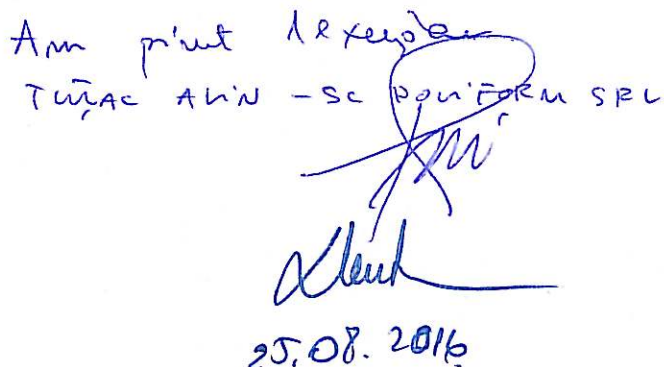 Am primit 1 exemplar
ȚUȚAC ALIN - SC POLIFORM SRL
25.08.2016